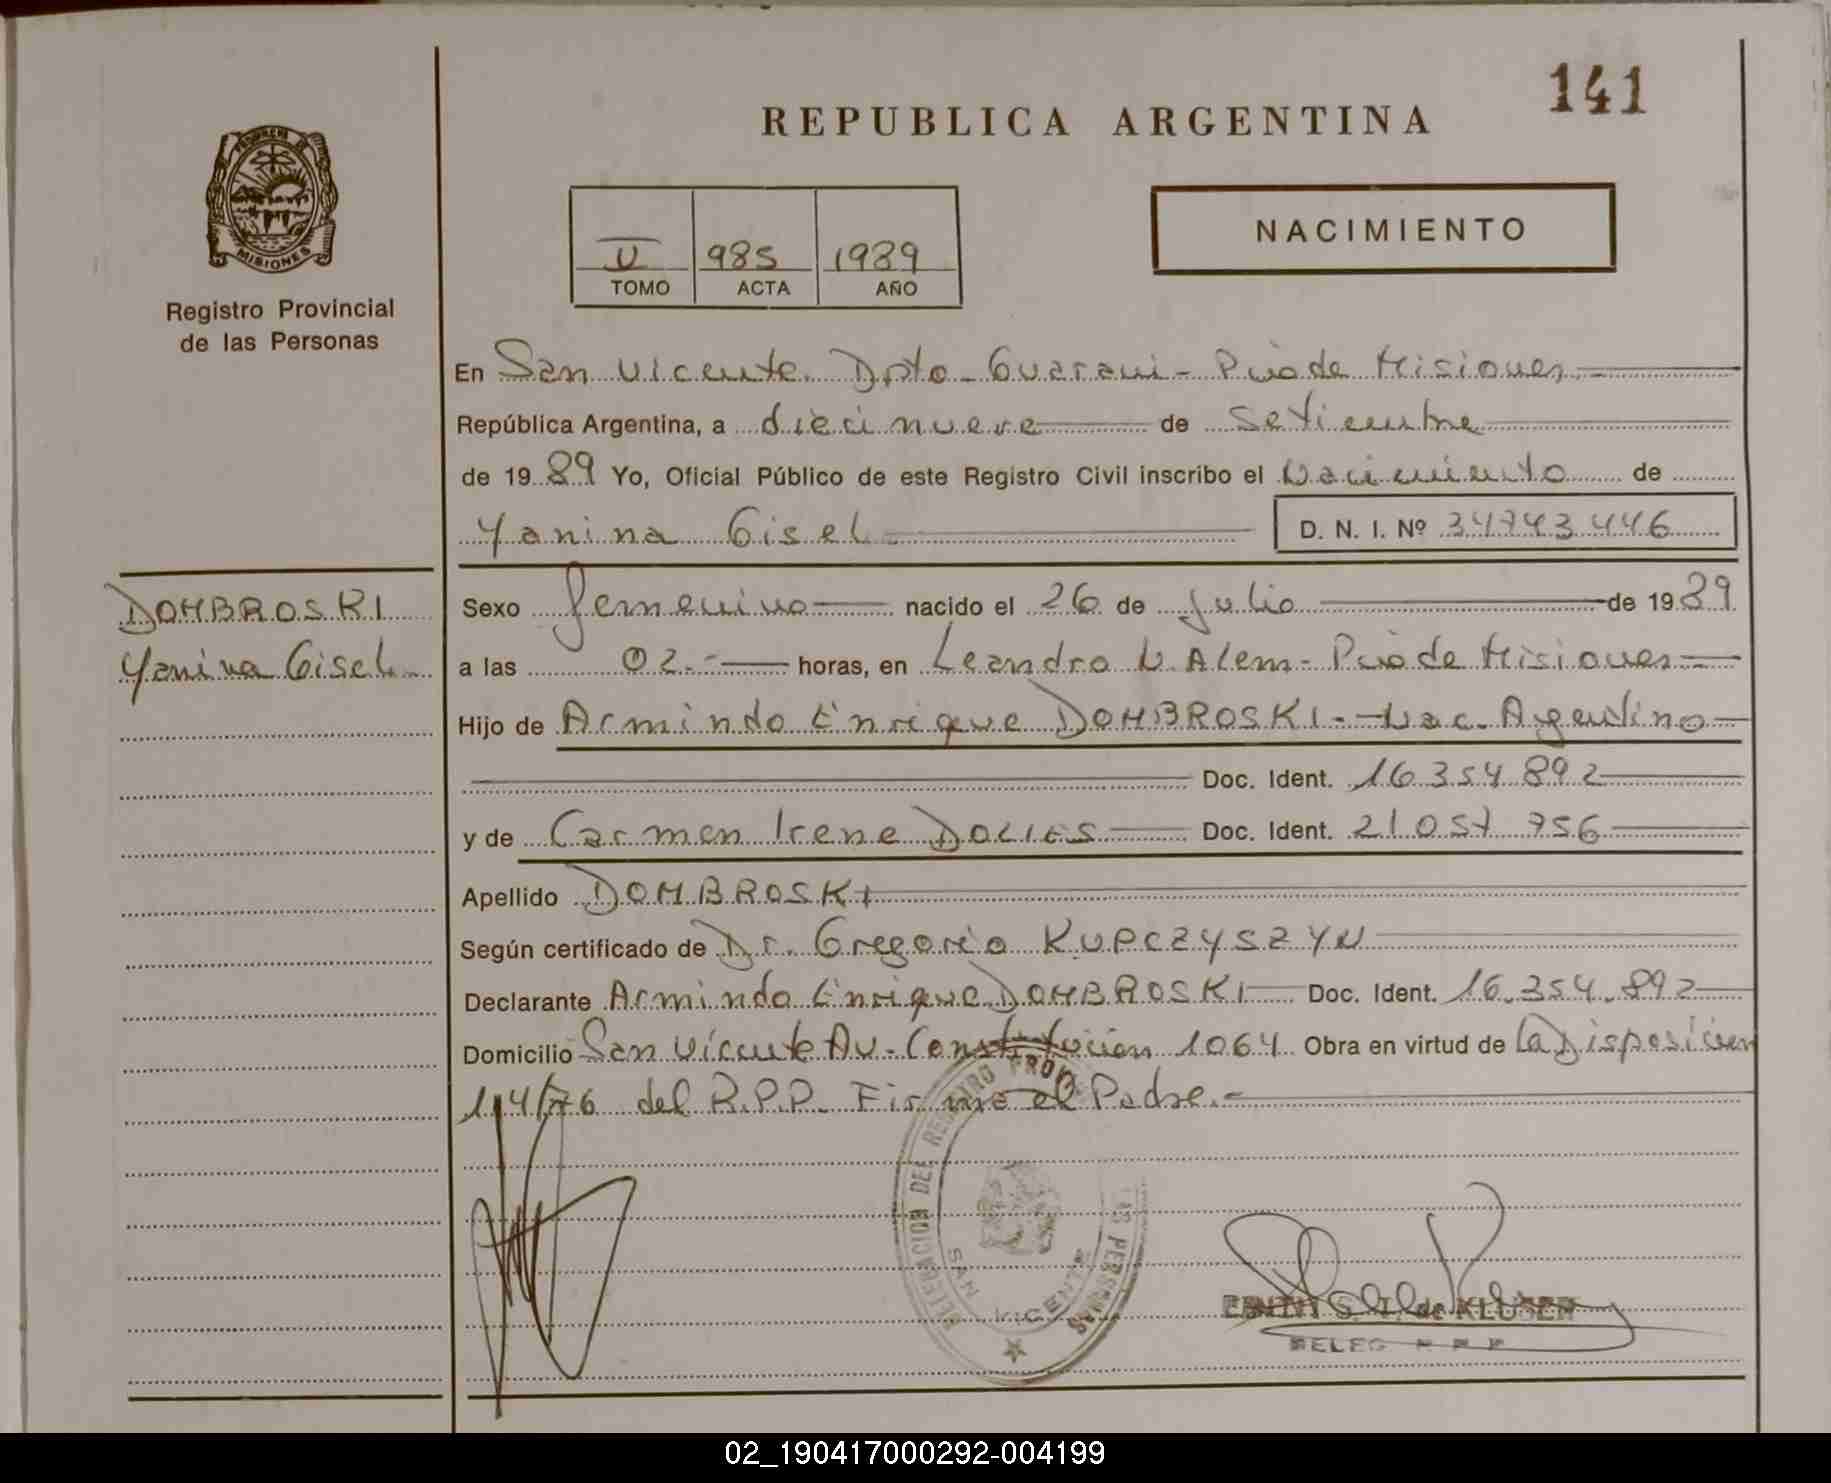 141
REPUBLICA ARGENTINA
PROVINCIA DE
MISIONES
Registro Provincial
de las Personas
V 985 1989
TOMO ACTA AÑO
NACIMIENTO
En San Vicente Dpto Guarani - Pcia de Misiones
República Argentina, a diecinueve de Setiembre
de 1989 Yo, Oficial Público de este Registro Civil inscribo el Nacimiento de
Yanina Gisel D. N. I. Nº 34743446
DOMBROSKI
Yanina Gisel
Sexo femenino nacido el 26 de Julio de 1989
a las 02.- horas, en Leandro N. Alem - Pcia de Misiones
Hijo de Armindo Enrique DOMBROSKI - Nac. Argentino
Doc. Ident. 16 354 892
y de Carmen Irene Doc. Ident. 21 057 756
Apellido DOMBROSKI
Según certificado de Dr. Gregorio KUPCZYSZYN
Declarante Armindo Enrique DOMBROSKI Doc. Ident. 16.354.892
Domicilio San Vicente Av. Constitucion 1064 Obra en virtud de la Disposicion
114/76 del R.P.P. Firma el Padre.-
DELEGACION DEL REGISTRO PROV. LAS PERSONAS
SAN VICENTE
S. T. de KLUSER
DELEG R P P
02_190417000292-004199